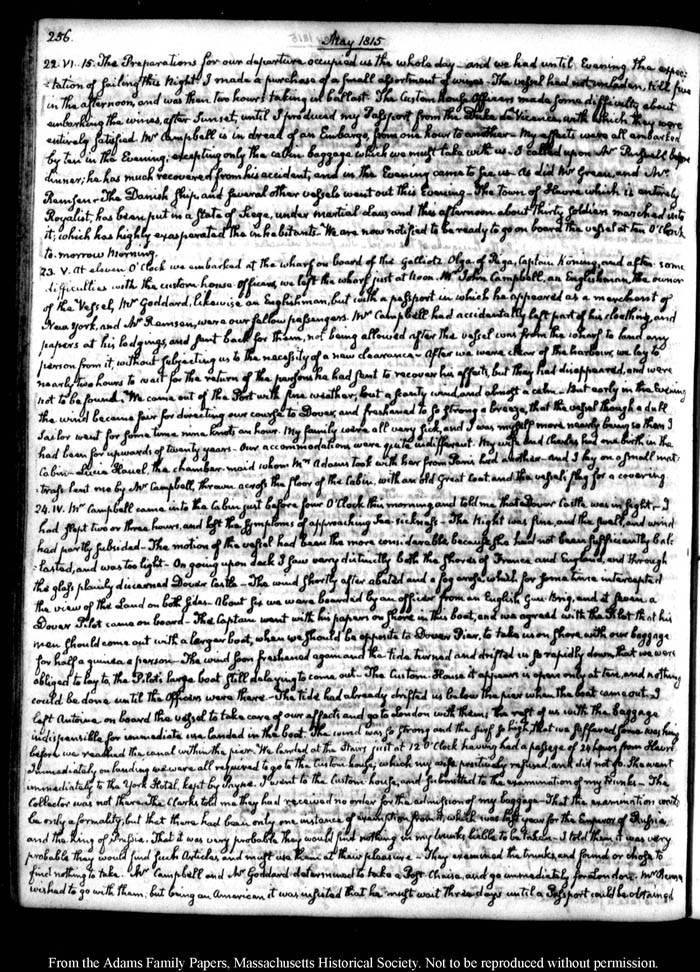 256.
May 1815
22. VI..15. The Preparations for our departure occupied us the whole day – and we had until Evening the expec-
-tation of sailing this Night. I made a purchase of a small assortment of wines – The vessel had not unladen, till five
in the afternoon, and was then two hours taking in ballast. The Custom House Officers made some difficulty about
embarking the wines, after Sunset, until I produced my Passport from the Duke de Vicence, with which they were
entirely satisfied. Mr Campbell is in dread of an Embargo, from one hour to another – My effects were all embarked
by ten in the Evening; excepting only the cabin baggage which we must take with us. I called upon Mr Russell before
dinner; he has much recovered from his accident, and in the Evening came to see us. As did Mr Green, and Mr
Remsen – The Danish Ship, and several other vessels went out this Evening – The Town of Havre which is entirely
Royalist, has been put in a State of Siege, under martial Law, and this afternoon about thirty Soldiers marched into
it; which has highly exasperated the inhabitants. We are now notified to be ready to go on board the vessel at ten O'Clock
to-morrow Morning.
23. V. At eleven O'Clock we embarked at the wharf on board of the Galliot Olga of Riga, Captain Köning, and after some
difficulties with the custom house officers, we left the wharf just at Noon. Mr John Campbell, an Englishman, the owner
of the Vessel, Mr Goddard, likewise an Englishman, but with a passport in which he appeared as a merchant of
New York, and Mr Remsen, were our fellow passengers. Mr Campbell had accidentally left part of his cloathing, and
papers at his lodgings, and sent back for them, not being allowed after the vessel was from the wharf to land any
person from it, without subjecting us to the necessity of a new clearance – After we were clear of the harbour, we lay to
nearly two hours to wait for the return of the persons he had sent to recover his effects, but they had disappeared, and were
not to be found. We came out of the Port with fine weather; but a scanty wind, and almost a calm. But early in the Evening
the wind became fair for directing our course to Dover, and freshened to so strong a breeze, that the vessel though a dull
Sailor went for some time nine knots an hour. My family were all very sick, and I was myself more nearly being so than I
had been for upwards of twenty years – Our accommodations were quite indifferent. My wife and Charles had one birth in the
Cabin – Lucia Houel, the chamber-maid whom Mrs Adams took with her from Paris had another – and I lay on a small mat-
-trass lent me by Mr Campbell, thrown across the floor of the Cabin, with an old Great Coat, and the vessel's flag for a covering.
24. IV. Mr Campbell came into the Cabin just before four O'Clock this morning, and told me that Dover Castle was in sight – I
had slept two or three hours, and lost the Symptoms of approaching Sea-sickness – The Night was fine, and the swell, and wind
had partly subsided – The motion of the vessel had been the more considerable because she had not been sufficiently bal-
-lasted, and was too light – On going upon deck I saw very distinctly both the Shores of France and England, and through
the glass plainly discerned Dover Castle – The wind shortly after abated and a fog arose which for some time intercepted
the view of the Land on both sides. About Six we were boarded by an officer from an English Gun-Brig, and at seven a
Dover Pilot came on board – The Captain went with his papers on shore in this boat, and we agreed with the Pilot that his
men should come out with a larger boat, when we should be opposite to Dover Pier, to take us on shore with our baggage
for half a guinea a person – The wind soon freshened again and the tide turned and drifted us so rapidly down, that we were
obliged to lay to, the Pilot's large boat still delaying to come out – The Custom House it appears is open only at ten, and nothing
could be done until the Officers were there – The tide had already drifted us below the pier when the boat came out – I
left Antoine on board the vessel to take care of our effects and go to London with them; the rest of us with the baggage
indispensible for immediate use landed in the boat. The wind was so strong and the surf so high that we suffered some washing
before we reached the canal within the pier. We landed at the Stairs just at 12 O'Clock having had a passage of 24 hours from Havre
Immediately on landing we were all required to go to the Custom house; which my wife positively refused, and did not go. She went
immediately to the York Hotel, kept by Payne. I went to the Custom house, and submitted to the examination of my trunks – The
Collector was not there. The Clerks told me they had received no order for the admission of my baggage – That the examination would
be only a formality; but that there had been only one instance of exemption from it, which was last year for the Emperor of Russia
and the King of Prussia. That it was very probable they would find nothing in my trunks liable to be taken – I told them it was very
probable they would find such Articles, and must use them at their pleasure – They examined the trunks, and found or chose to
find nothing to take. Mr Campbell and Mr Goddard determined to take a Post-Chaise, and go immediately for London; Mr Remsen
wished to go with them, but being an American it was insisted that he must wait three days until a Passport could be obtained
From the Adams Family Papers, Massachusetts Historical Society. Not to be reproduced without permission.